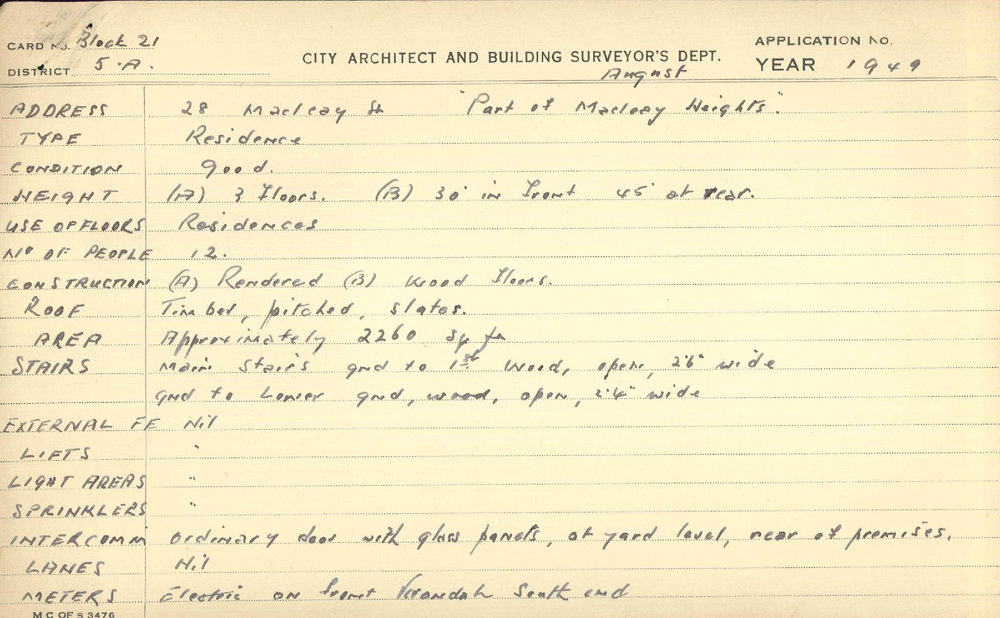 CARD No. Block 21
CITY ARCHITECT AND BUILDING SURVEYOR'S DEPT.
APPLICATION No.
DISTRICT 5.A.
August
YEAR 1949
ADDRESS 28 Macleay St "Part of Macleay Heights".
TYPE Residence
CONDITION good.
HEIGHT (A) 3 Floors. (B) 30' in Front 45' at rear.
USE OF FLOORS Residences
No OF PEOPLE 12.
CONSTRUCTION (A) Rendered (B) Wood Floors.
ROOF Timber, pitched, slates.
AREA Approximately 2260 sq ft
STAIRS Main Stairs gnd to 1st Wood, open, 2'6" wide
gnd to Lower gnd, wood, open, 2'4" wide
EXTERNAL FE Nil
LIFTS "
LIGHT AREAS "
SPRINKLERS "
INTERCOMM Ordinary door with glass panels, at yard level, rear of premises.
LANES Nil
METERS Electric on front Verandah South end
M C OF S 3476